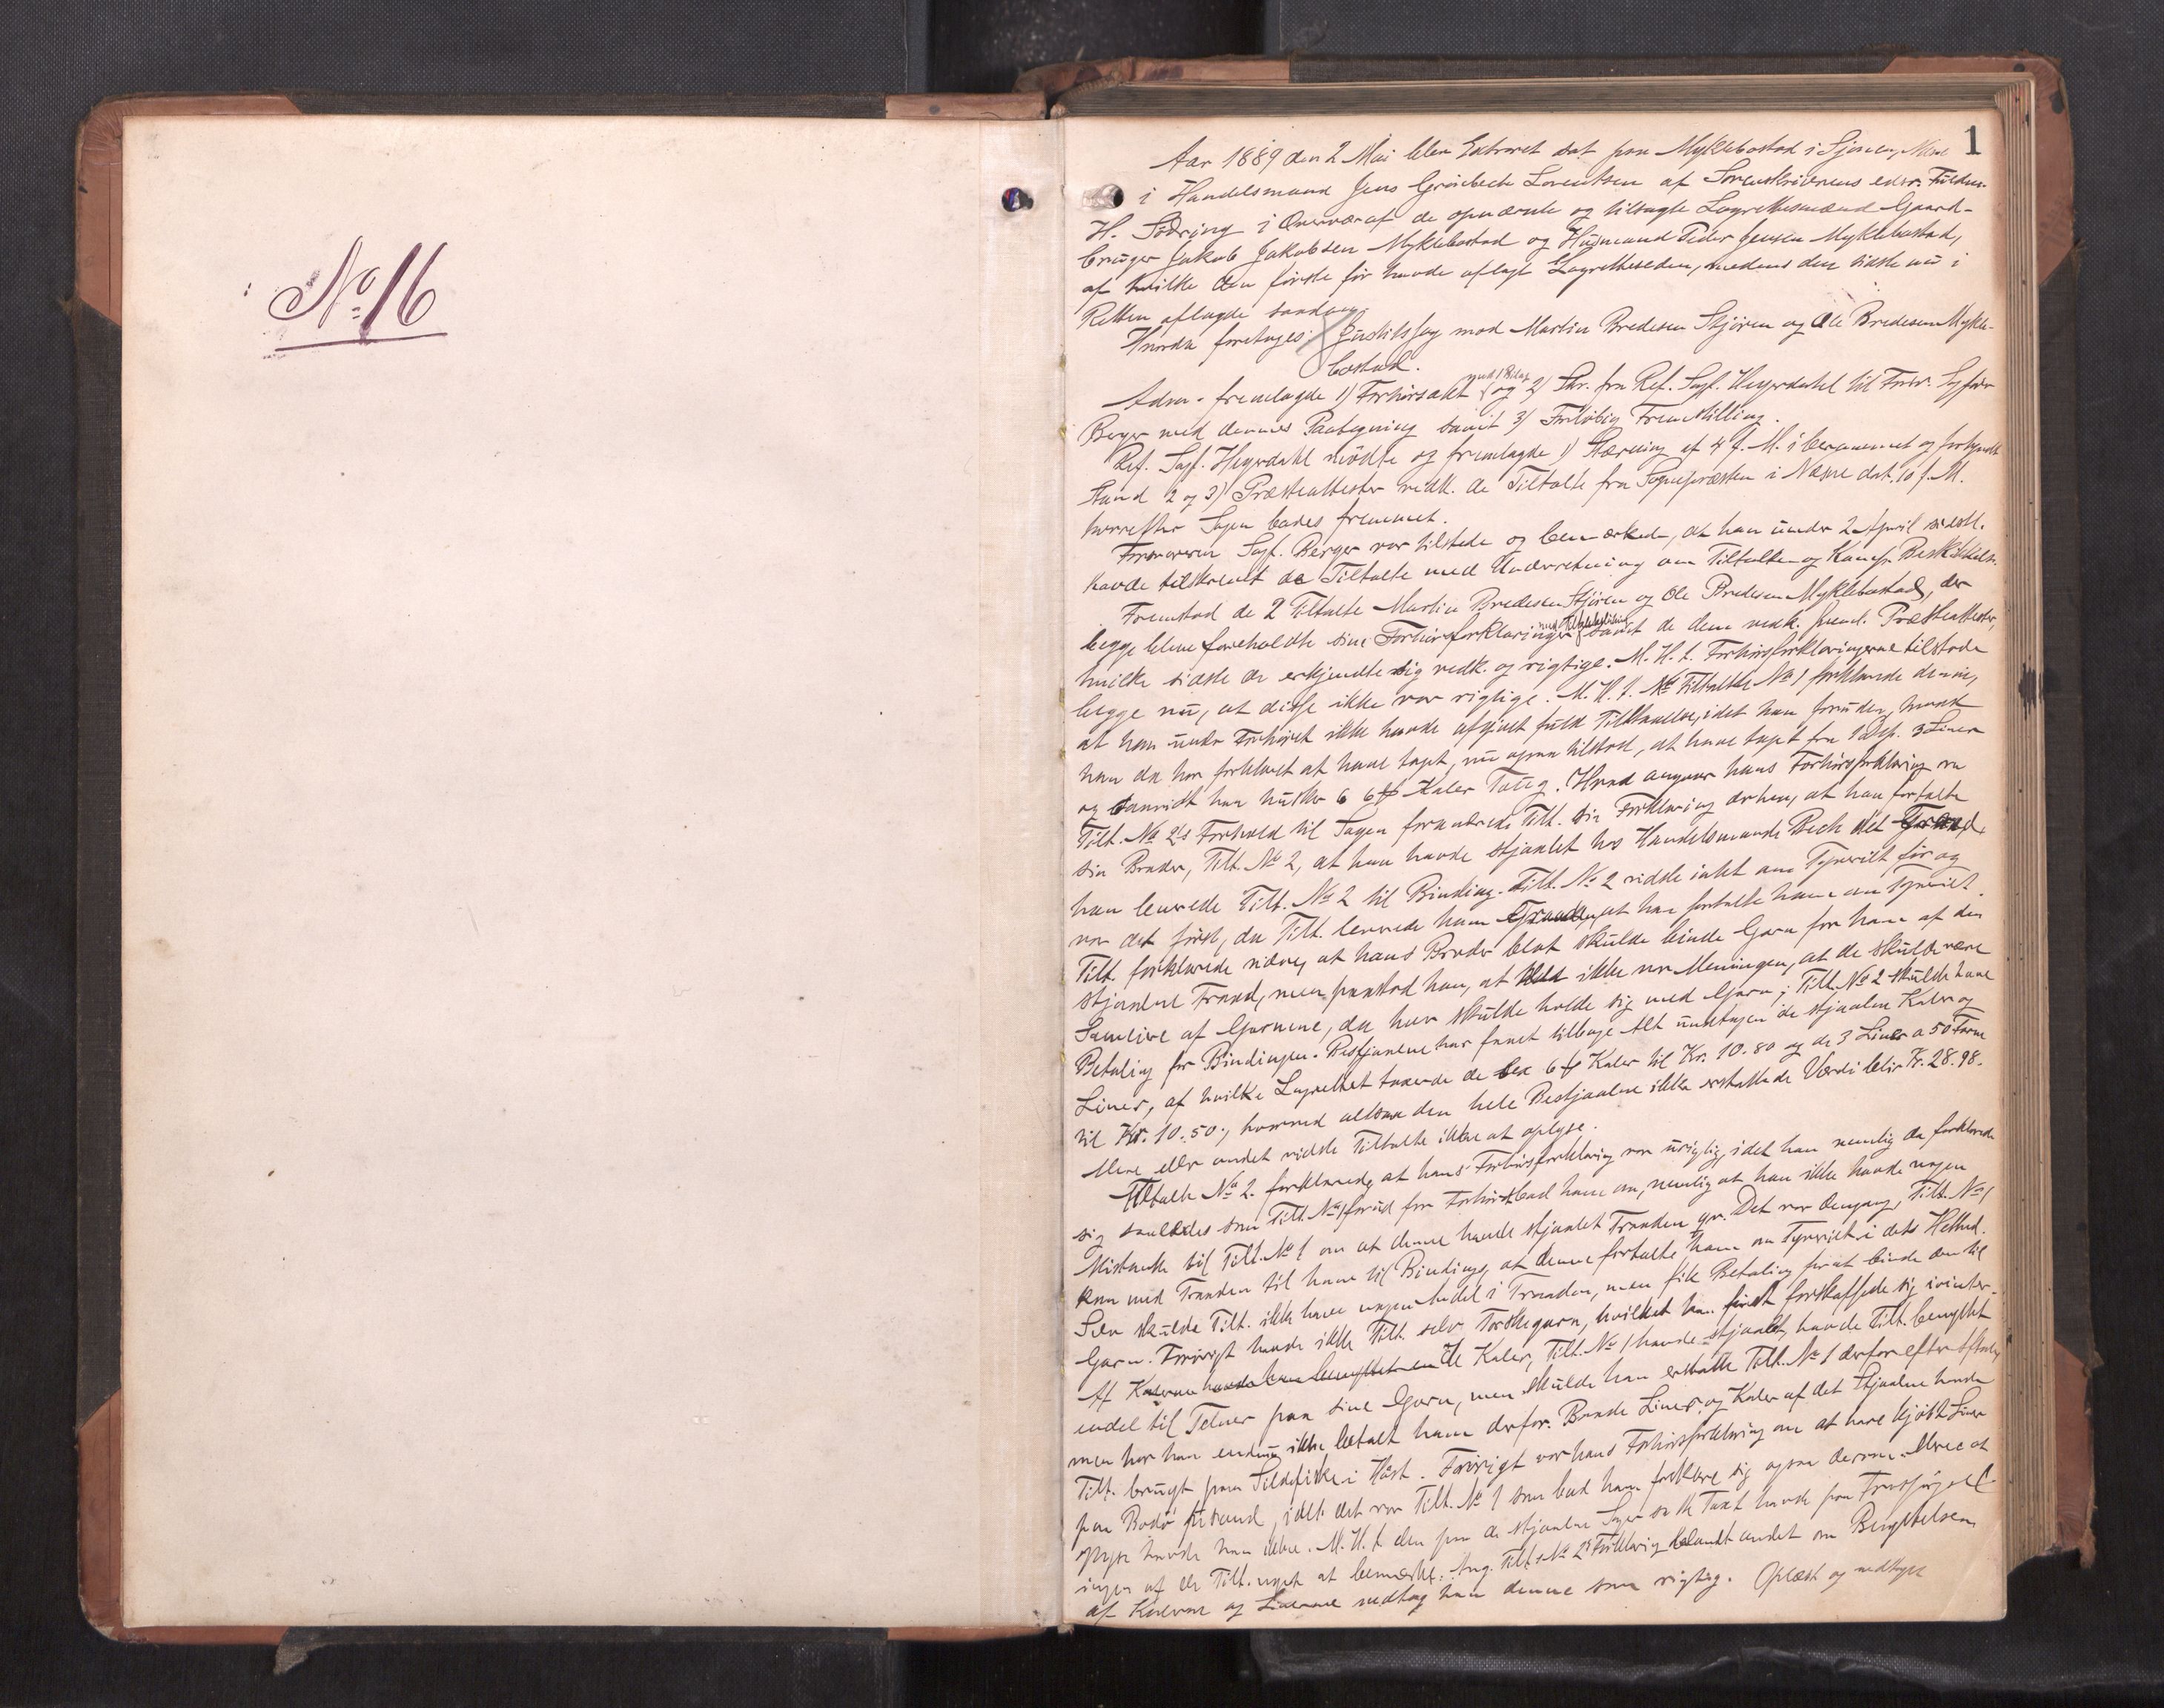 No 16
1
Aar 1889 den 2 Mai blev Extraret sat paa Myklebostad i
i Handelsmand Jens Grönbech Lorentsen af Sorenskriverens edsv. Fuldm.
H. Södring i Overvær af de opnævnte og tilsagte Lagrettesmænd Gaard-
bruger Jakob Jakobsen Myklebostad og Husmand Peder Jensen Myklebostad,
af hvilke den förste för havde aflagt Lagretteseden, medens den sidste nu i
Retten aflagde saadan.
Hvorda foretoges: Justitssag mod Martin Bredesen Stjören og Ole Bredesen Mykle-
bostad.
Adm. fremlagde 1) Forhörsakt med 1 Bilag og 2) Skr. fra Ref. Sagf. Heyerdahl til Forsv. Sagförer
Berger med dennes Paategning samt 3) Forlöbig Fremstilling.
Ref. Sagf. Heyerdahl mödte og fremlagde 1) Stævning af 4 f. M. i berammet og forkyndt
Stand 2 og 3) Præsteattester vedk. de Tiltalte fra Sognepræsten i Næsne dat. 10 f. M.
hvorefter Sagen bades fremmet.
Forsvareren Sagf. Berger var tilstede og bemærkede, at han under 2 April sidstl.
havde tilskrevet de Tiltalte med Underretning om Tiltalten og Beskikkelse.
Fremstod de 2 Tiltalte Martin Bredesen Stjören og Ole Bredesen Myklebostad, der
begge bleve foreholdte sine Forhörsforklaringer samt de dem vedk. freml. Præsteattester,
hvilke sidste de erkjendte sig vedk. og rigtige. M. H. t. Forhörsforklaringerne tilstode
begge nu, at disse ikke var rigtige. M. H. t. Tiltalte No 1 forklarede denne,
at han under Forhöret ikke havde afgivet fuld Tilstaaelse, idet han foruden, hvad
han da har forklaret at have taget, nu ogsaa tilstod, at have taget fra 3 Liner
og saavidt han husker 6 Kaler Toug. Hvad angaar hans Forhörsforklaring om
Tilt. No 2's Forhold til Sagen forandrede Tilt. sin Forklaring derhen, at han fortalte
sin Broder, Tilt. No 2, at han havde stjaalet hos Handelsmand Bech det Traad,
han leverede Tilt. No 2 til Binding. Tilt. No 2 vidste intet om Tyveriet för og
var det först, da Tilt. leverede ham Traaden, at han fortalte ham om Tyveriet.
Tilt. forklarede videre, at hans Broder blot skulde binde Garn for ham af den
stjaalne Traad, men paastod han, at det ikke var Meningen, at de skulde være
Sameiere af Garnene, da han skulde holde sig med Garn; Tilt. No 2 skulde have
Betaling for Bindingen. Bestjaalne har faaet tilbage Alt undtagen de stjaalne Kaler og
Liner, af hvilke Lagrettet taxerede de 6 Kaler til Kr. 10.80 og de 3 Liner a 50 Favne
til Kr. 10.50, hvorved altsaa den hele Bestjaalne ikke erstattede Værdi bliver Kr. 28.98.
Mere eller andet vidste Tiltalte ikke at oplyse.
Tiltalte No 2. forklarede, at hans Forhörsforklaring var urigtig, idet han nemlig da forklarede
sig saaledes som Tilt. No 1 forud for Forhöret bad ham om, nemlig at han ikke havde nogen
Mistanke til Tilt. No 1 om at denne havde stjaalet Traaden. Det var dengang, Tilt. No 1
kom med Traaden til ham til Binding, at denne fortalte ham om Tyveriet i dets Helhed.
Selv skulde Tilt. ikke have nogen Andel i Traaden, men fik Betaling for at binde den til
Garn. Forövrigt havde ikke Tilt. selv Torskegarn, hvilket han först forskaffede sig ivinter.
Af de Kaler, Tilt. No 1 havde stjaalet, havde Tilt. benyttet
endel til Telner paa sine Garn, men skulde han erstatte Tilt. No 1 derfor efter Aftale,
men har han endnu ikke betalt ham derfor. Baade Liner og Kaler af det Stjaalne havde
Tilt. brugt paa Sildefiske i Höst. Forövrigt var hans Forhörsforklaring om at have kjöbt Liner
paa Bodö usand, idet det var Tilt. No 1 som bad ham forklare sig ogsaa derom. Mere at
oplyse havde han ikke. M. H. t. den paa de stjaalne Sager satte Taxt havde paa Forespörgsel
ingen af de Tilt. noget at bemærke. Ang. Tilt. No 2's Forklaring blandt andet om Benyttelsen
af Kalerne og Linerne vedtog han denne som rigtig. Oplæst og vedtaget